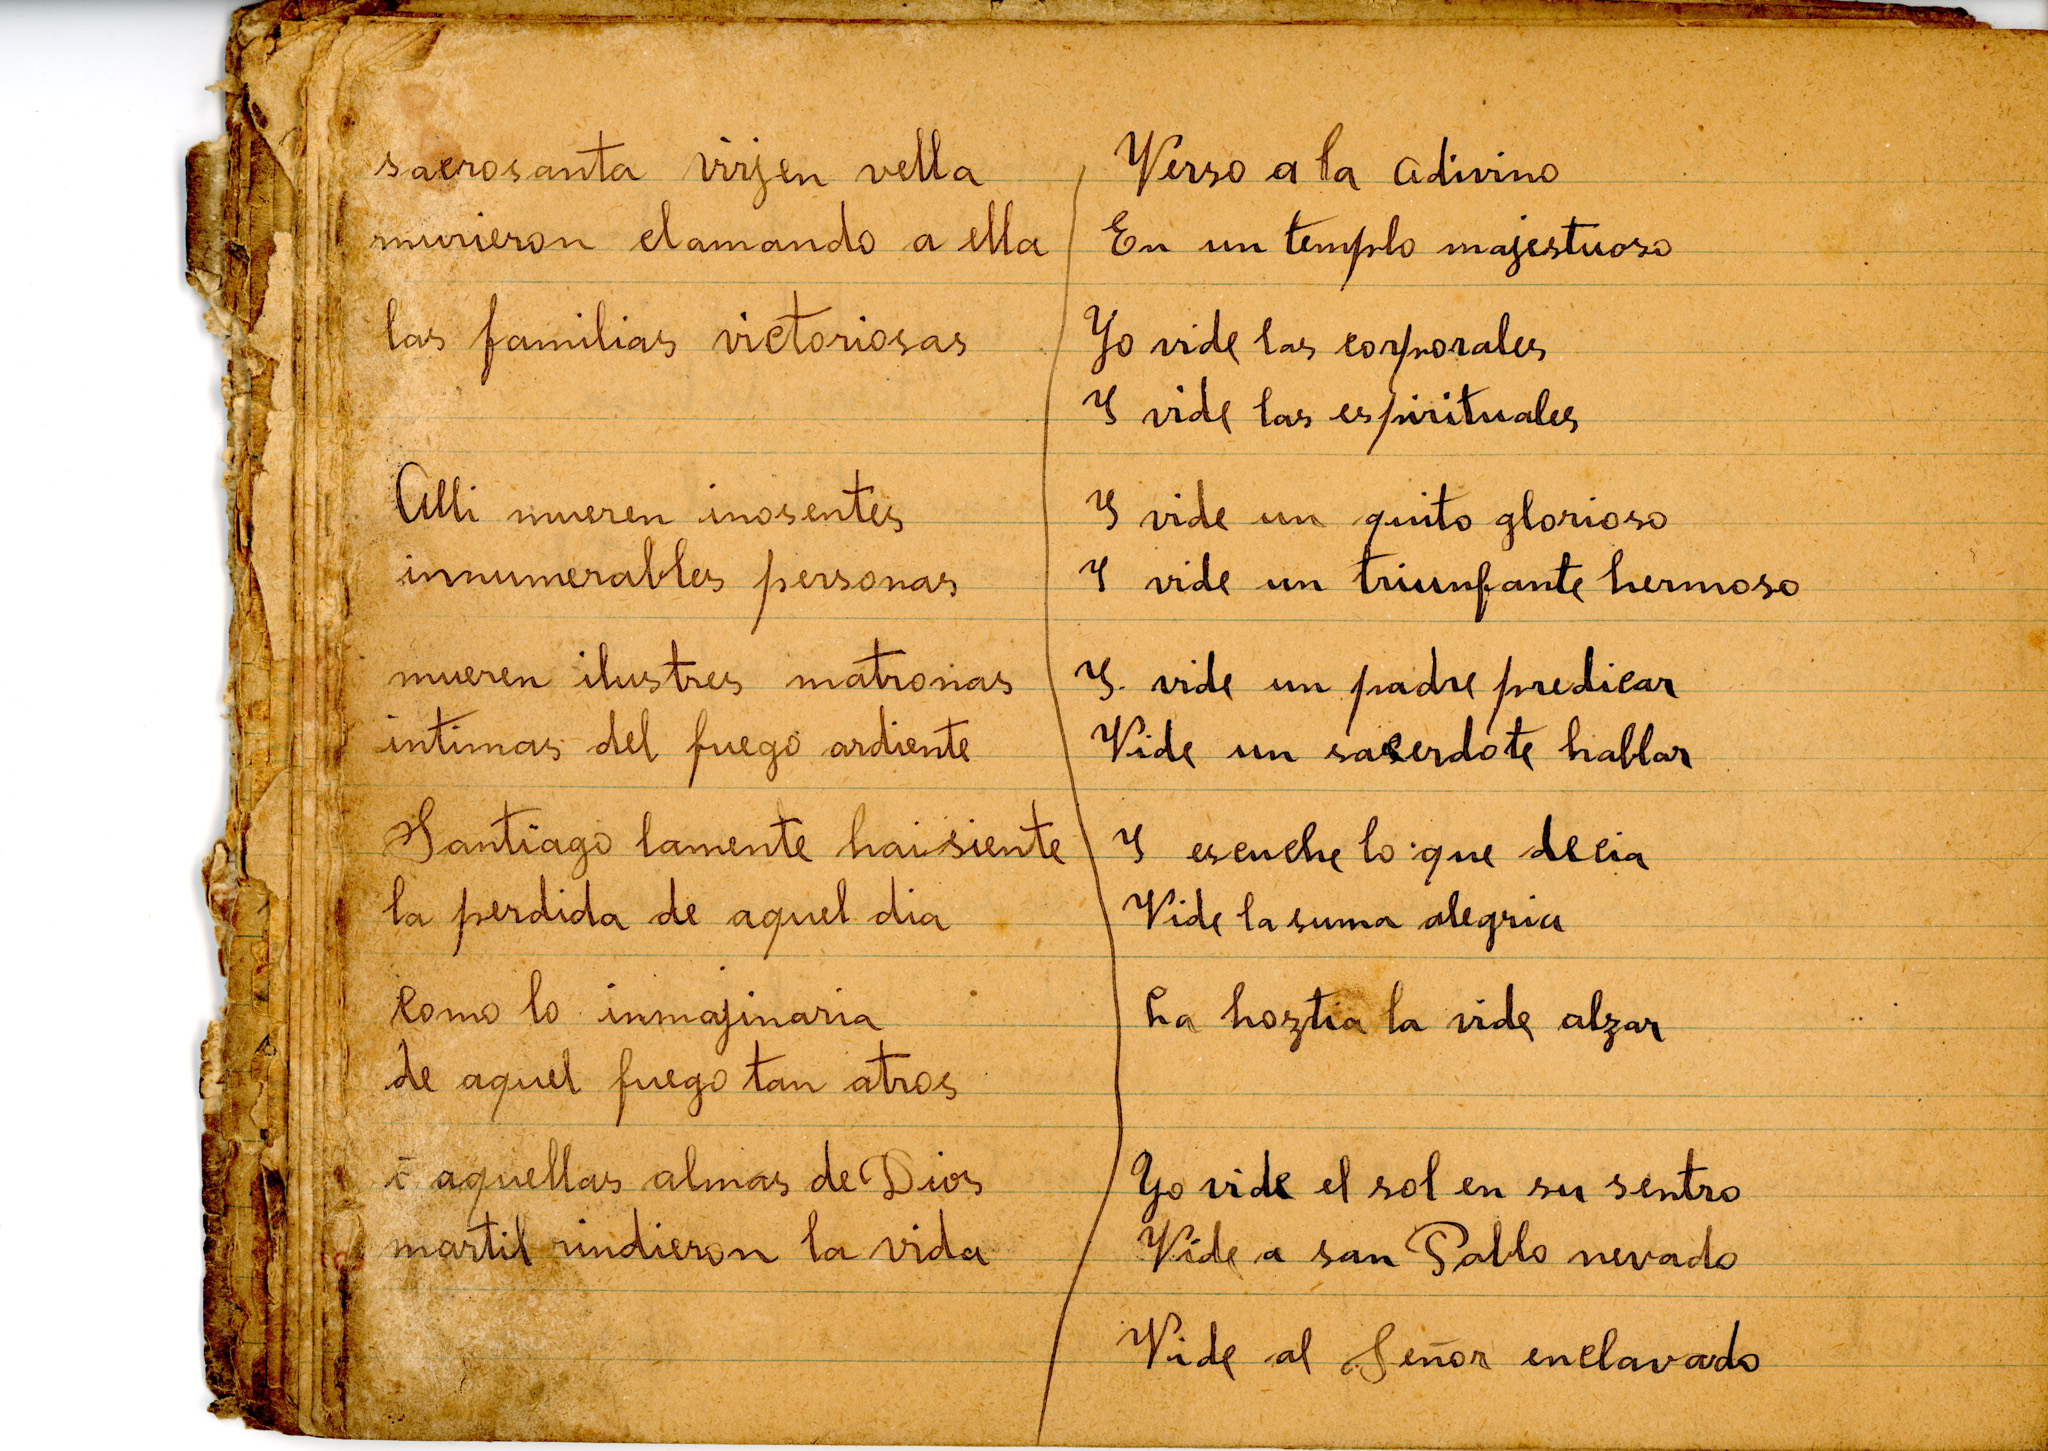 sacrosanta virjen vella
murieron clamando a ella
las familias victoriosas
Alli mueren inosentes
innumerables personas
mueren ilustres matronas
intimas del fuego ardiente
Santiago lamente hai siente
la perdida de aquel dia
como lo inmajinaria
de aquel fuego tan atros
aquellas almas de Dios
martil rindieron la vida
Verso a la adivino
En un templo majestuoso
Yo vide las corporales
Y vide las espirituales
Y vide un quito glorioso
Y vide un triunfante hermoso
Y. vide un padre predicar
Vide un sacerdote hablar
Y escuche lo que decia
Vide la suma alegria
La hoztia la vide alzar
Yo vide el sol en su sentro
Vide a san Pablo nevado
Vide al Señor enclavado